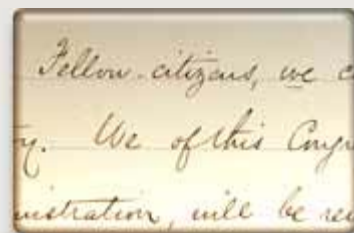 Fellow-citizens, we c
ry. We of this Congr
nistration, will be re